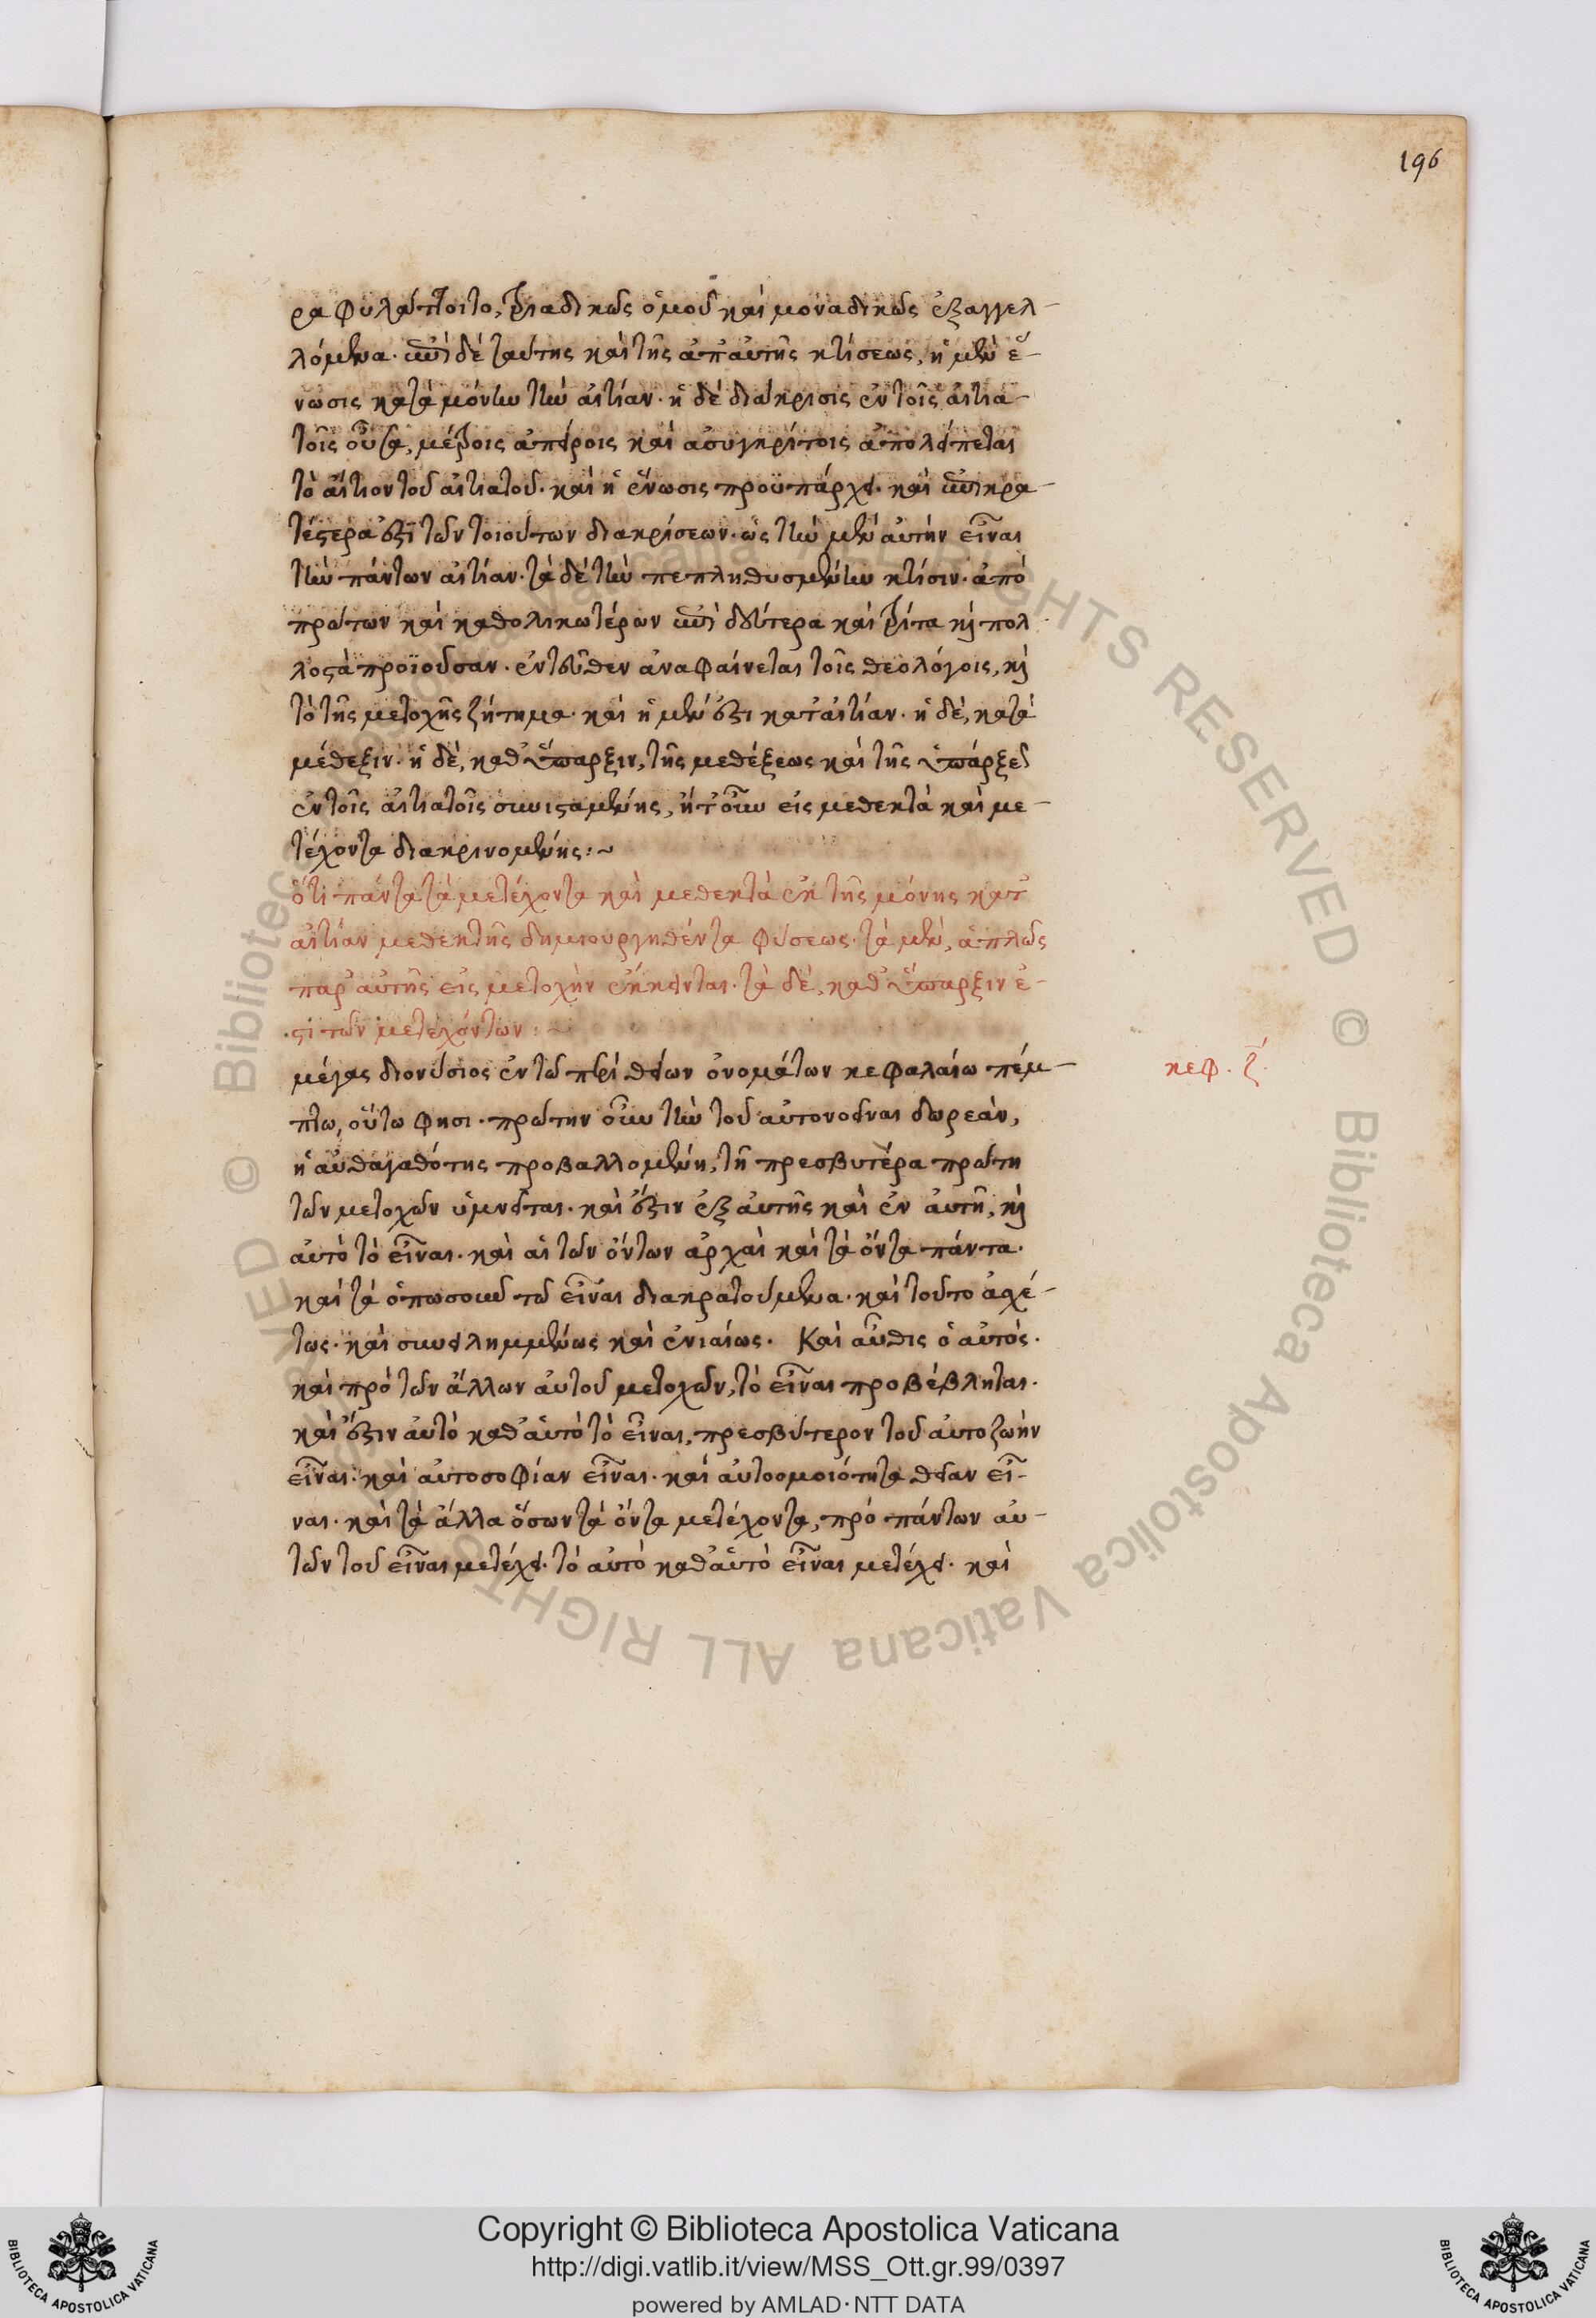 196
ρα φυλάττοιτο, τριαδικῶς ὁμοῦ καὶ μοναδικῶς ἐξαγγελ-
λόμενα. ἐπὶ δὲ ταύτης καὶ τῆς ἀπ' αὐτῆς κτίσεως, ἡ μὲν ἕ-
νωσις κατὰ μόνην τὴν αἰτίαν. ἡ δὲ διάκρισις ἐν τοῖς αἰτια-
τοῖς οὖσα, μέτροις ἀπείροις καὶ ἀσυγκρίτοις ἀπολείπεται
τὸ αἴτιον τοῦ αἰτιατοῦ. καὶ ἡ ἕνωσις προϋπάρχει. καὶ ἐπικρα-
τέστερα ἐστὶ τῶν τοιούτων διακρίσεων. ὡς τὴν μὲν αὐτὴν εἶναι
τὴν πάντων αἰτίαν. τὰ δὲ τὴν πεπληθυσμένην κτίσιν. ἀπὸ
πρώτων καὶ καθολικωτέρων ἐπὶ δεύτερα καὶ τρίτα καὶ πολ
λοστὰ προϊοῦσαν. ἐντεῦθεν ἀναφαίνεται τοῖς θεολόγοις, καὶ
τὸ τῆς μετοχῆς ζήτημα. καὶ ἡ μὲν ἐστι κατ' αἰτίαν. ἡ δὲ, κατὰ
μέθεξιν. ἡ δὲ, καθ' ὕπαρξιν, τῆς μεθέξεως καὶ τῆς ὑπάρξεως
ἐν τοῖς αἰτιατοῖς συνισταμένης, ἤτ' οὖν εἰς μεθεκτὰ καὶ με-
τέχοντα διακρινομένης:~
ὅτι πάντα τὰ μετέχοντα καὶ μεθεκτὰ ἐκ τῆς μόνης κατ'
αἰτίαν μεθεκτῆς δημιουργηθέντα φύσεως. τὰ μὲν, ἁπλῶς
παρ' αὐτῆς εἰς μετοχὴν ἔκκεινται. τὰ δὲ, καθ' ὕπαρξιν ἐ-
στὶ τῶν μετεχόντων:~
μέγας διονύσιος ἐν τῶ περὶ θείων ὀνομάτων κεφαλαίω πέμ-
κεφ. ζ'.
πτω, οὕτω φησι. πρώτην οὖν τὴν τοῦ αὐτονοεῖναι δωρεὰν,
ἡ αὐθαγαθότης προβαλλομένη, τῆ πρεσβυτέρα πρώτη
τῶν μετοχῶν ὑμνεῖται. καὶ ἔστιν ἐξ αὐτῆς καὶ ἐν αὐτῆ, καὶ
αὐτὸ τὸ εἶναι. καὶ αἱ τῶν ὄντων ἀρχαὶ καὶ τὰ ὄντα πάντα.
καὶ τὰ ὁπωσοῦν τῶ εἶναι διακρατούμενα. καὶ τοῦτο ἀσχέ-
τως. καὶ συνειλημμένως καὶ ἑνιαίως. Καὶ αὖθις ὁ αὐτός.
καὶ πρὸ τῶν ἄλλων αὐτοῦ μετοχῶν, τὸ εἶναι προβέβληται.
καὶ ἔστιν αὐτὸ καθ' αὑτὸ τὸ εἶναι, πρεσβύτερον τοῦ αὐτοζωὴν
εἶναι. καὶ αὐτοσοφίαν εἶναι. καὶ αὐτοομοιότητα θείαν εἶ-
ναι. καὶ τὰ ἄλλα ὅσων τὰ ὄντα μετέχοντα, πρὸ πάντων αὐ-
τῶν τοῦ εἶναι μετέχει. τὸ αὐτὸ καθ' αὑτὸ εἶναι μετέχει. καὶ
Copyright © Biblioteca Apostolica Vaticana
http://digi.vatlib.it/view/MSS_Ott.gr.99/0397
powered by AMLAD·NTT DATA